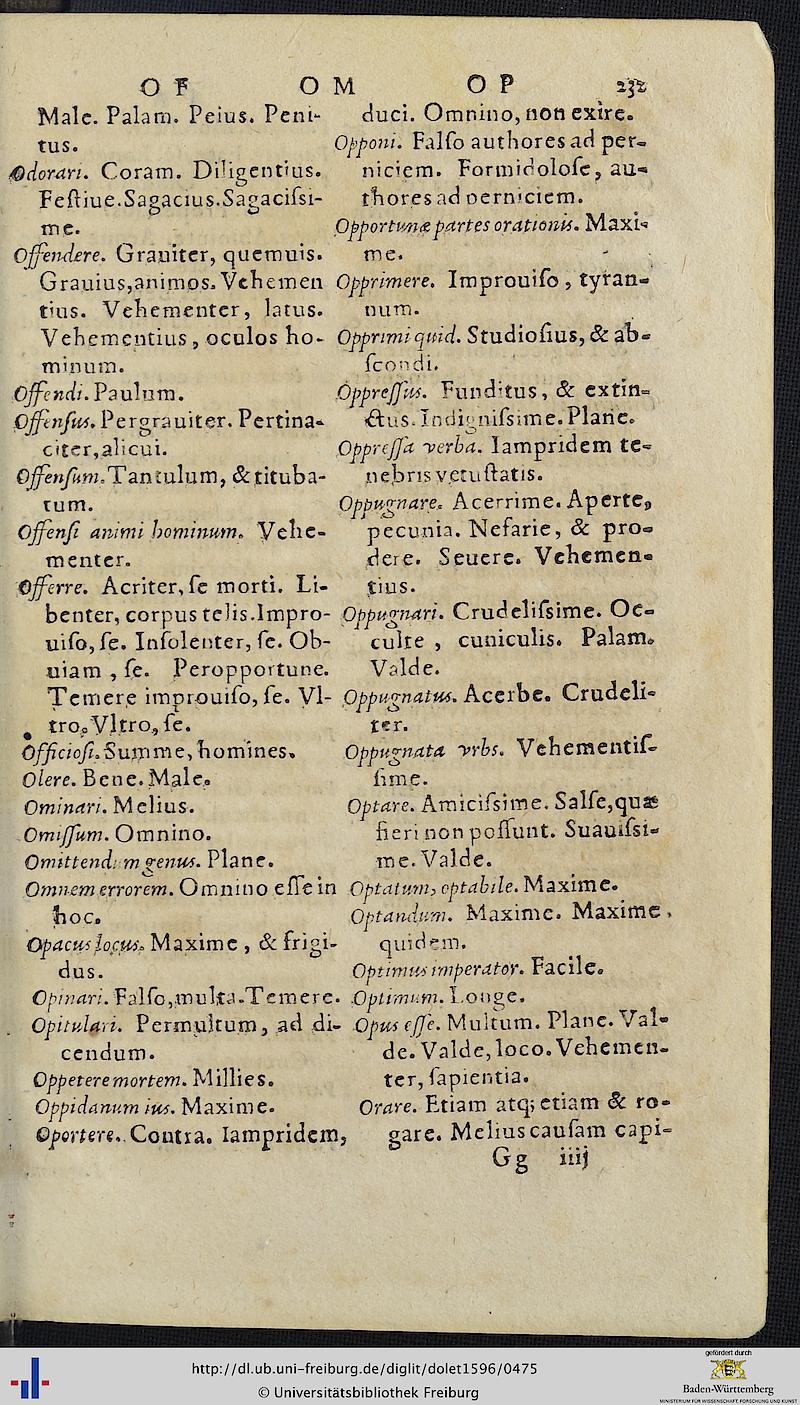 OF OM OP 232
Male. Palam. Peius. Peni-
tus.
Odorari. Coram. Diligentius.
Feſtiue. Sagacius. Sagacifsi-
me.
Offendere. Grauiter, quemuis.
Grauius, animos. Vehemen
tius. Vehementer, latus.
Vehementius, oculos ho-
minum.
Offendi. Paulum.
Offenſus. Pergrauiter. Pertina-
citer, alicui.
Offenſum. Tantulum, & tituba-
tum.
Offenſi animi hominum. Vehe-
menter.
Offerre. Acriter, ſe morti. Li-
benter, corpus telis. Impro-
uiſo, ſe. Inſolenter, ſe. Ob-
uiam, ſe. Peropportune.
Temere improuiſo, ſe. Vl-
tro. Vltro, ſe.
Officioſi. Summe, homines.
Olere. Bene. Male.
Ominari. Melius.
Omiſſum. Omnino.
Omittendum genus. Plane.
Omnem errorem. Omnino eſſe in
hoc.
Opacus locus. Maxime, & frigi-
dus.
Opinari. Falſo, multa. Temere.
Opitulari. Permultum, ad di-
cendum.
Oppetere mortem. Millies.
Oppidanum ius. Maxime.
Oportere. Contra. Iampridem,
duci. Omnino, non exire.
Opponi. Falſo authores ad per-
niciem. Formidoloſe, au-
thores ad perniciem.
Opportunæ partes orationis. Maxi-
me.
Opprimere. Improuiſo, tyran-
num.
Opprimi quid. Studioſius, & ab-
ſcondi.
Oppreſſus. Funditus, & extin-
ctus. Indignifsime. Plane.
Oppreſſa verba. Iampridem te-
nebris vetuſtatis.
Oppugnare. Acerrime. Aperte,
pecunia. Nefarie, & pro-
dere. Seuere. Vehemen-
tius.
Oppugnari. Crudelifsime. Oc-
culte, cuniculis. Palam.
Valde.
Oppugnatus. Acerbe. Crudeli-
ter.
Oppugnata vrbs. Vehementiſ-
ſime.
Optare. Amicifsime. Salſe, quæ
fieri non poſſunt. Suauifsi-
me. Valde.
Optatum, optabile. Maxime.
Optandum. Maxime. Maxime,
quidem.
Optimus imperator. Facile.
Optimum. Longe.
Opus eſſe. Multum. Plane. Val-
de. Valde, loco. Vehemen-
ter, ſapientia.
Orare. Etiam atq; etiam & ro-
gare. Melius cauſam capi-
Gg iiij
http://dl.ub.uni-freiburg.de/diglit/dolet1596/0475
© Universitätsbibliothek Freiburg
gefördert durch
Baden-Württemberg
MINISTERIUM FÜR WISSENSCHAFT, FORSCHUNG UND KUNST